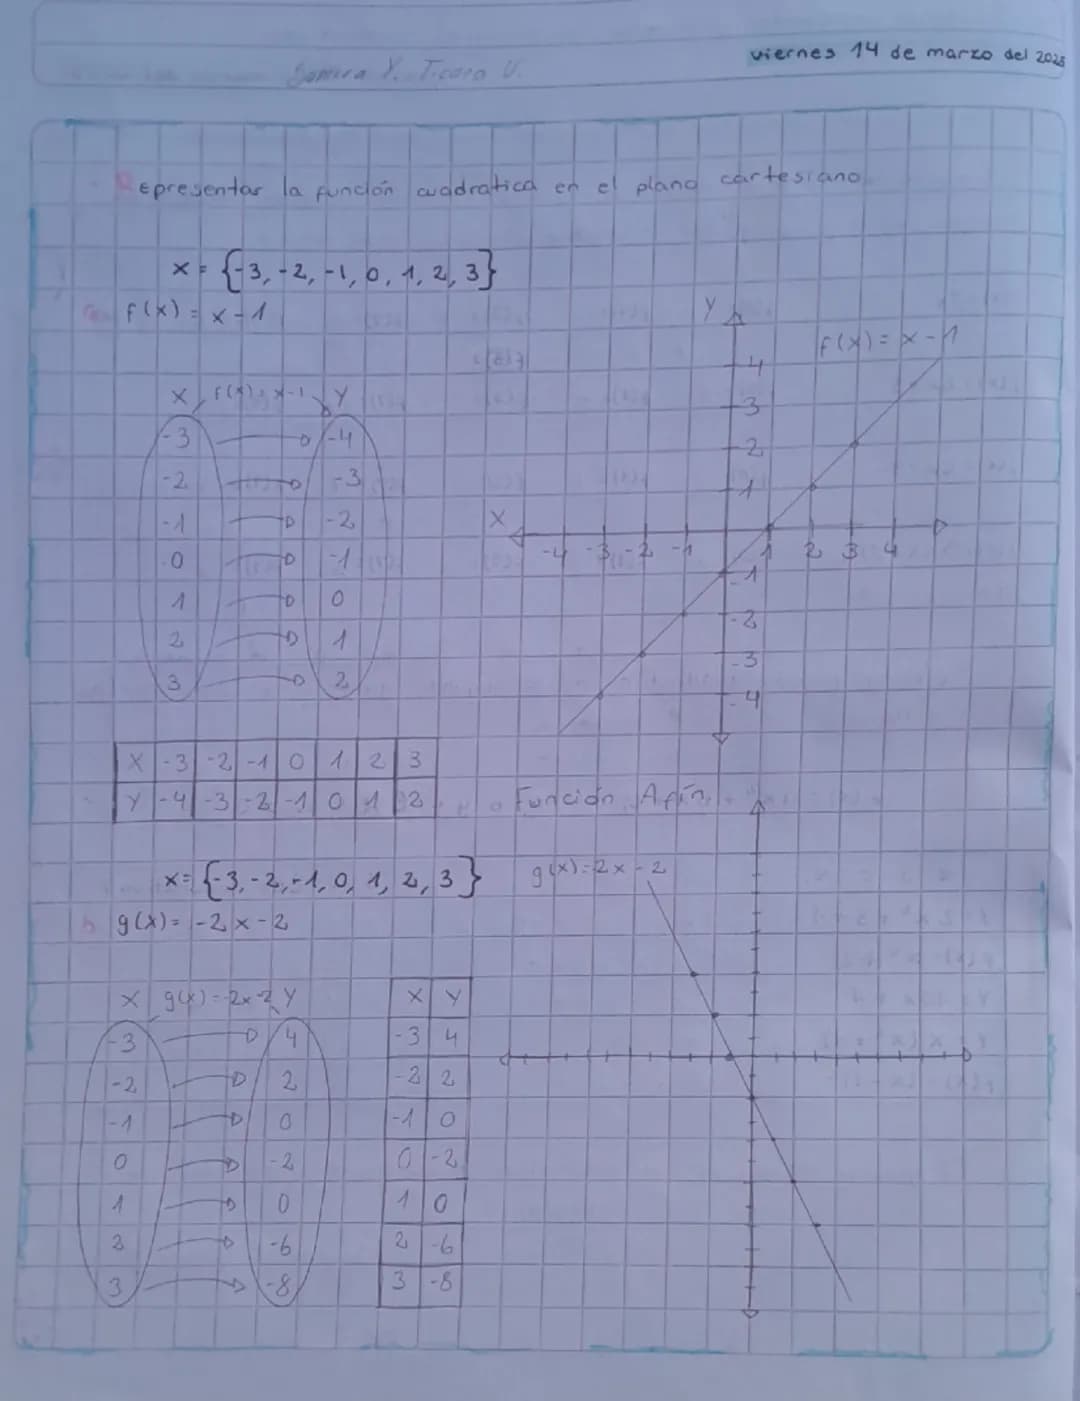 viernes 14 de marzo del 2025
Samira Y. Ticara U.
Representar la función cuadratica en el plano cartesiano
x = {-3, -2, -1, 0, 1, 2, 3}
f(x) = x - 1
X f(x) = x-1 Y
-3 -4
-2 -3
-1 -2
0 -1
1 0
2 1
3 2
Y
f(x) = x - 1
4
3
2
1
X
-4 -3 -2 -1 1 2 3 4
-1
-2
-3
-4
X -3 -2 -1 0 1 2 3
Y -4 -3 -2 -1 0 1 2
Función Afín
x = {-3, -2, -1, 0, 1, 2, 3}
g(x) = -2x - 2
g(x) = -2x - 2
X g(x) = -2x-2 Y
-3 4
-2 2
-1 0
0 -2
1 0
2 -6
3 -8
X Y
-3 4
-2 2
-1 0
0 -2
1 0
2 -6
3 -8